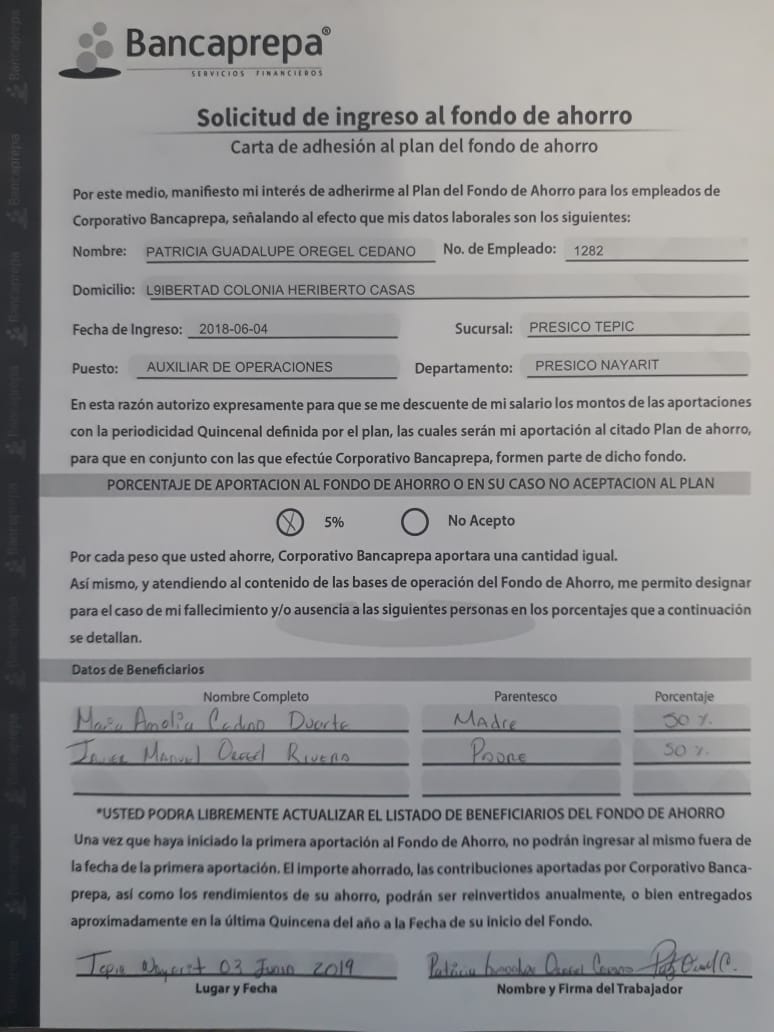 Bancaprepa®
SERVICIOS FINANCIEROS
Solicitud de ingreso al fondo de ahorro
Carta de adhesión al plan del fondo de ahorro
Por este medio, manifiesto mi interés de adherirme al Plan del Fondo de Ahorro para los empleados de
Corporativo Bancaprepa, señalando al efecto que mis datos laborales son los siguientes:
Nombre: PATRICIA GUADALUPE OREGEL CEDANO No. de Empleado: 1282
Domicilio: L9IBERTAD COLONIA HERIBERTO CASAS
Fecha de Ingreso: 2018-06-04 Sucursal: PRESICO TEPIC
Puesto: AUXILIAR DE OPERACIONES Departamento: PRESICO NAYARIT
En esta razón autorizo expresamente para que se me descuente de mi salario los montos de las aportaciones
con la periodicidad Quincenal definida por el plan, las cuales serán mi aportación al citado Plan de ahorro,
para que en conjunto con las que efectúe Corporativo Bancaprepa, formen parte de dicho fondo.
PORCENTAJE DE APORTACION AL FONDO DE AHORRO O EN SU CASO NO ACEPTACION AL PLAN
X 5% No Acepto
Por cada peso que usted ahorre, Corporativo Bancaprepa aportara una cantidad igual.
Así mismo, y atendiendo al contenido de las bases de operación del Fondo de Ahorro, me permito designar
para el caso de mi fallecimiento y/o ausencia a las siguientes personas en los porcentajes que a continuación
se detallan.
Datos de Beneficiarios
Nombre Completo Parentesco Porcentaje
Maria Amelia Cedano Duarte Madre 50 %
Javier Manuel Oregel Rivera Padre 50 %
*USTED PODRA LIBREMENTE ACTUALIZAR EL LISTADO DE BENEFICIARIOS DEL FONDO DE AHORRO
Una vez que haya iniciado la primera aportación al Fondo de Ahorro, no podrán ingresar al mismo fuera de
la fecha de la primera aportación. El importe ahorrado, las contribuciones aportadas por Corporativo Banca-
prepa, así como los rendimientos de su ahorro, podrán ser reinvertidos anualmente, o bien entregados
aproximadamente en la última Quincena del año a la Fecha de su inicio del Fondo.
Tepic Nayarit 03 Junio 2019 Patricia Guadalupe Oregel Cedano
Lugar y Fecha Nombre y Firma del Trabajador